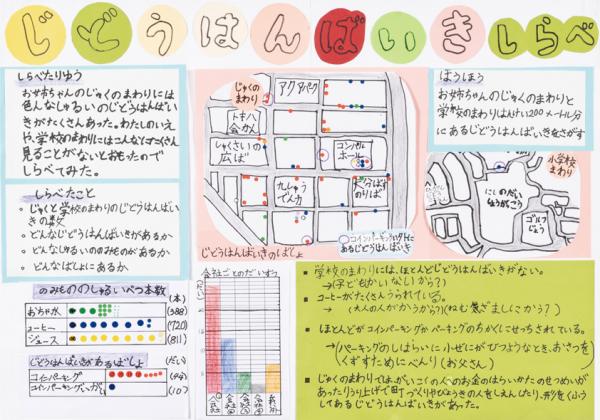 じどうはんばいきしらべ
しらべたりゆう
お姉ちゃんのじゅくのまわりには
色んなしゅるいのじどうはんばい
きがたくさんあった。わたしのいえ
や、学校のまわりにはこんなにたくさん
見ることがないとおもったので
しらべてみた。
しらべたこと
じゅくと学校のまわりのじどうはんばい
きの数
どんなじどうはんばいきがあるか
どんなしゅるいののみものがあるか
どんなばしょにあるか
のみもののしゅるいべつ本数
(本)
おちゃ・水
(388)
コーヒー
(720)
ジュース
(811)
じどうはんばいきがあるばしょ
(だい)
コインパーキング
コインパーキングいがい
じゅくの
まわり
アクアパーク
トキハ
会かん
しゅくさいの
広ば
コンパル
ホール
大分ばす
のりば
コインパーキングいがいに
あるじどうはんばいき
じどうはんばいきのばしょ
会社ごとのだいすう
ほうほう
お姉ちゃんのじゅくのまわりと
学校のまわりはんけい200メートル分
にあるじどうはんばいきをさがす
小学校
まわり
にしのだい
しょうがっこう
ゴルフ
じょう
学校のまわりには、ほとんどじどうはんばいきがない。
→(子どもがいないから?)
コーヒーがたくさんうられている。
→(大人の人がかうから?)(ねむ気ざましにかう?)
ほとんどがコインパーキングかパーキングのちかくにせっちされている。
→(パーキングのしはらいに小ぜにがひつようなとき、おさつを
くずすためにべんり(お父さん)
じゅくのまわりでは、がいこくの人へのお金のはらいかたのせつめいが